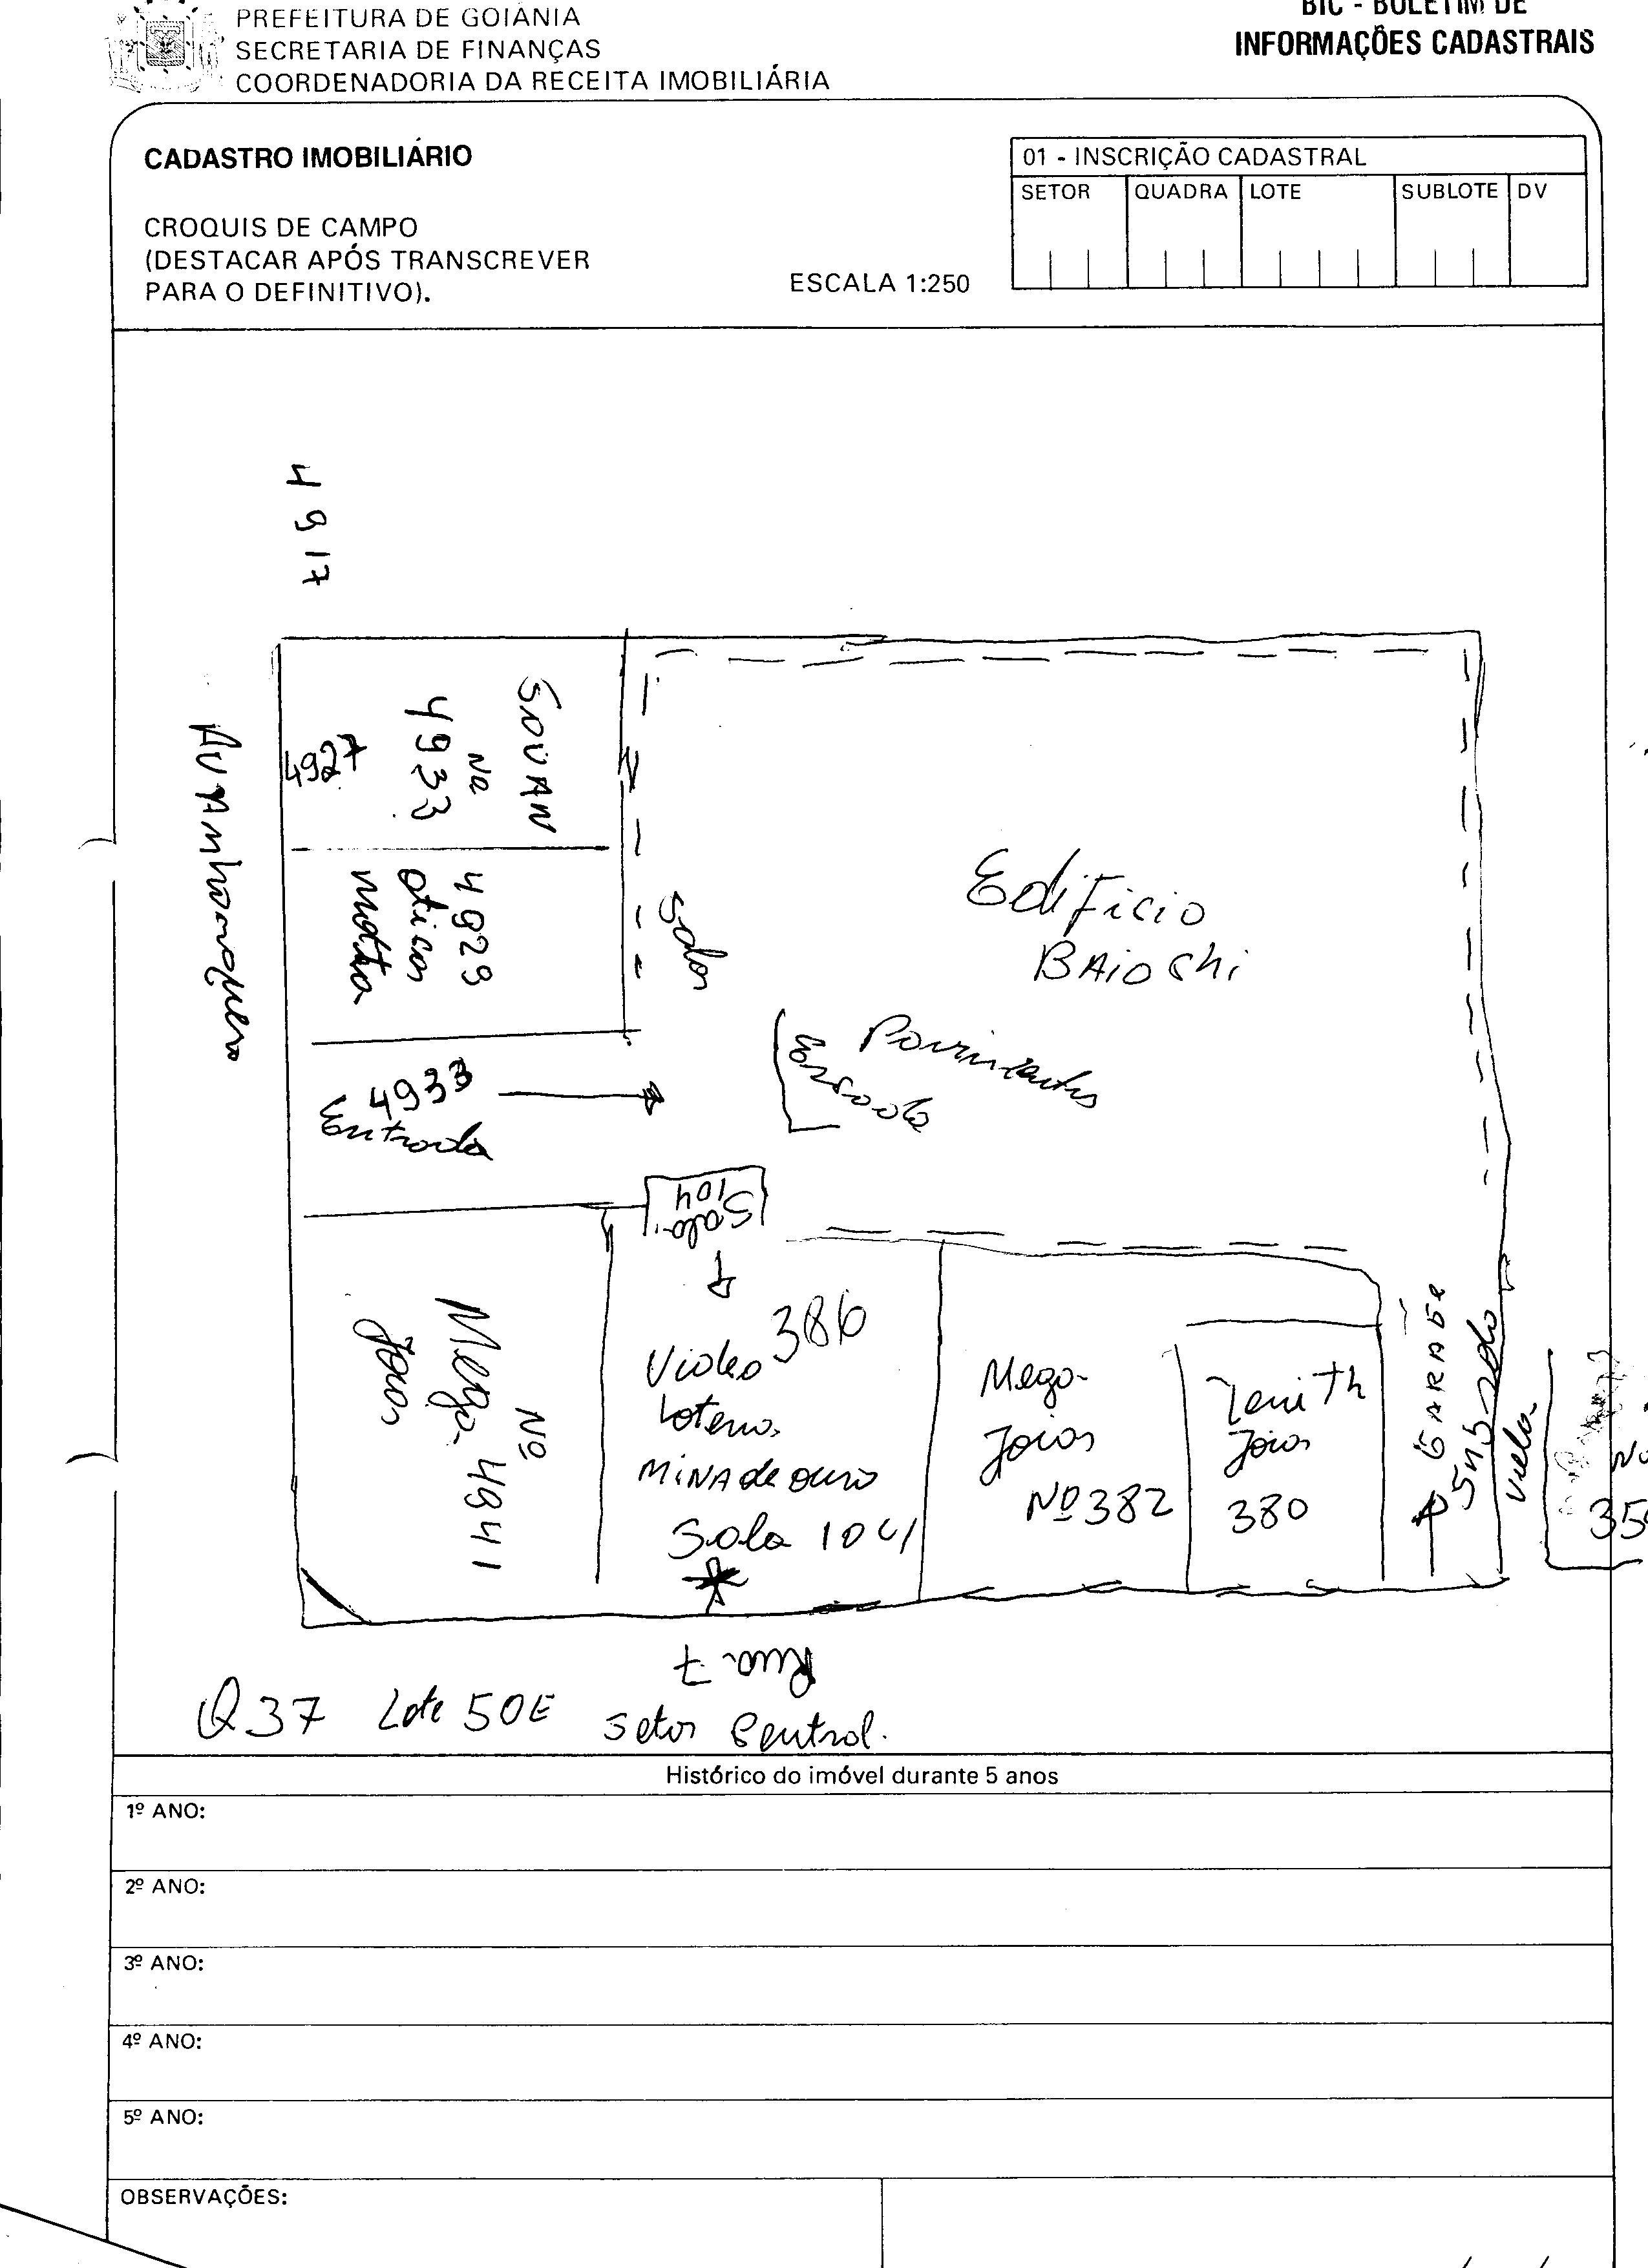 PREFEITURA DE GOIÂNIA
SECRETARIA DE FINANÇAS
COORDENADORIA DA RECEITA IMOBILIÁRIA
BIC - BOLETIM DE
INFORMAÇÕES CADASTRAIS
CADASTRO IMOBILIÁRIO
CROQUIS DE CAMPO
(DESTACAR APÓS TRANSCREVER
PARA O DEFINITIVO).
ESCALA 1:250
01 - INSCRIÇÃO CADASTRAL
SETOR QUADRA LOTE SUBLOTE DV
4917
4927
4933
Nº
4929
oticas
Salas
Edificio
BAiochi
Pavimentos
4933
Entrada
Sala
104
Mega
Joias
Nº
4941
386
Video
Loteria
MINA de ouro
Sala 104
Mega
Joias
Nº 382
Zenith
Joias
380
GARAGE
viela
Rua 7
Q 37 Lote 50E Setor Central.
Histórico do imóvel durante 5 anos
1º ANO:
2º ANO:
3º ANO:
4º ANO:
5º ANO:
OBSERVAÇÕES: